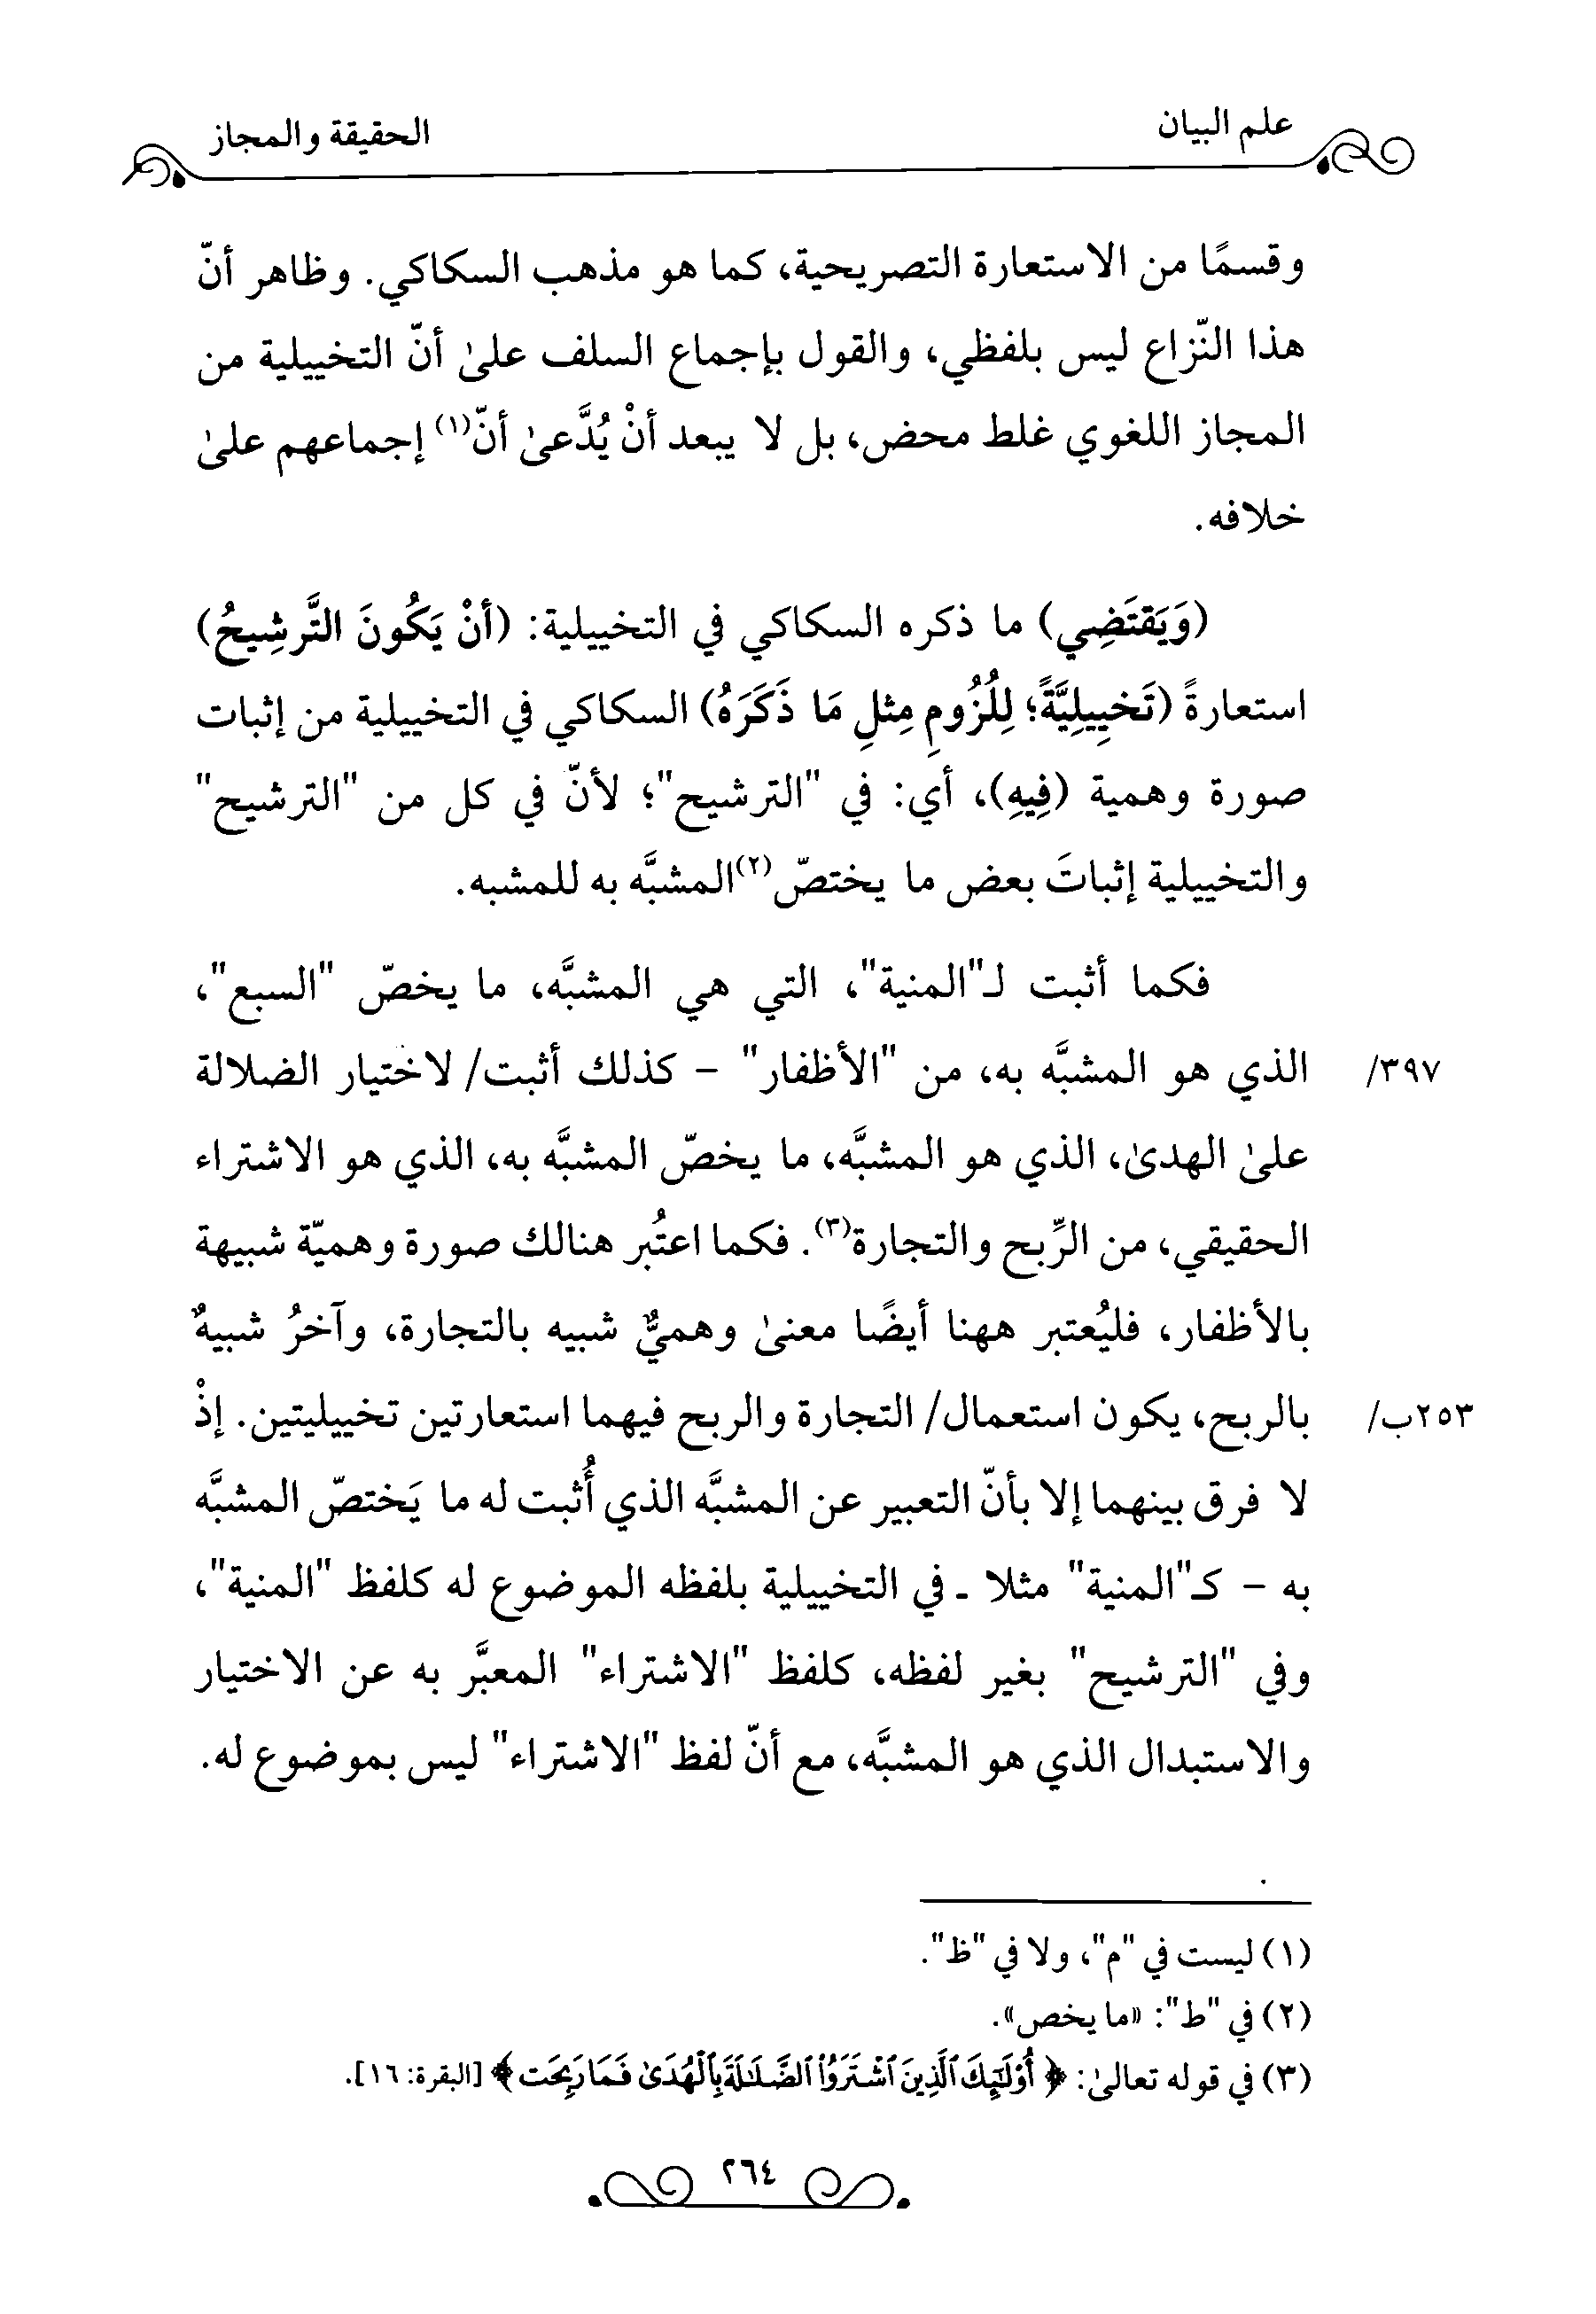 علم البيان
الحقيقة والمجاز
وقسمًا من الاستعارة التصريحية، كما هو مذهب السكاكي. وظاهر أنّ
هذا النّزاع ليس بلفظي، والقول بإجماع السلف علىٰ أنّ التخييلية من
المجاز اللغوي غلط محض، بل لا يبعد أنْ يُدَّعىٰ أنّ(١) إجماعهم علىٰ
خلافه.
(وَيَقتَضِي) ما ذكره السكاكي في التخييلية: (أنْ يَكُونَ التَّرشِيحُ)
استعارةً (تَخيِيلِيَّةً؛ لِلُزُومِ مِثلِ مَا ذَكَرَهُ) السكاكي في التخييلية من إثبات
صورة وهمية (فِيهِ)، أي: في "الترشيح"؛ لأنّ في كل من "الترشيح"
والتخييلية إثباتَ بعض ما يختصّ(٢)المشبَّه به للمشبه.
فكما أثبت لـ"المنية"، التي هي المشبَّه، ما يخصّ "السبع"،
الذي هو المشبَّه به، من "الأظفار" – كذلك أثبت/ لاختيار الضلالة
٣٩٧/
علىٰ الهدىٰ، الذي هو المشبَّه، ما يخصّ المشبَّه به، الذي هو الاشتراء
الحقيقي، من الرِّبح والتجارة(٣). فكما اعتُبر هنالك صورة وهميّة شبيهة
بالأظفار، فليُعتبر ههنا أيضًا معنىٰ وهميٌّ شبيه بالتجارة، وآخرُ شبيهٌ
بالربح، يكون استعمال/ التجارة والربح فيهما استعارتين تخييليتين. إذْ
٢٥٣ب/
لا فرق بينهما إلا بأنّ التعبير عن المشبَّه الذي أُثبت له ما يَختصّ المشبَّه
به – كـ"المنية" مثلا ـ في التخييلية بلفظه الموضوع له كلفظ "المنية"،
وفي "الترشيح" بغير لفظه، كلفظ "الاشتراء" المعبَّر به عن الاختيار
والاستبدال الذي هو المشبَّه، مع أنّ لفظ "الاشتراء" ليس بموضوع له.
(١) ليست في "م"، ولا في "ظ".
(٢) في "ط": «ما يخص».
(٣) في قوله تعالىٰ: ﴿ أُوْلَٰٓئِكَ ٱلَّذِينَ ٱشْتَرَوُاْ ٱلضَّلَٰلَةَ بِٱلْهُدَىٰ فَمَا رَبِحَت ﴾ [البقرة: ١٦].
٢٦٤